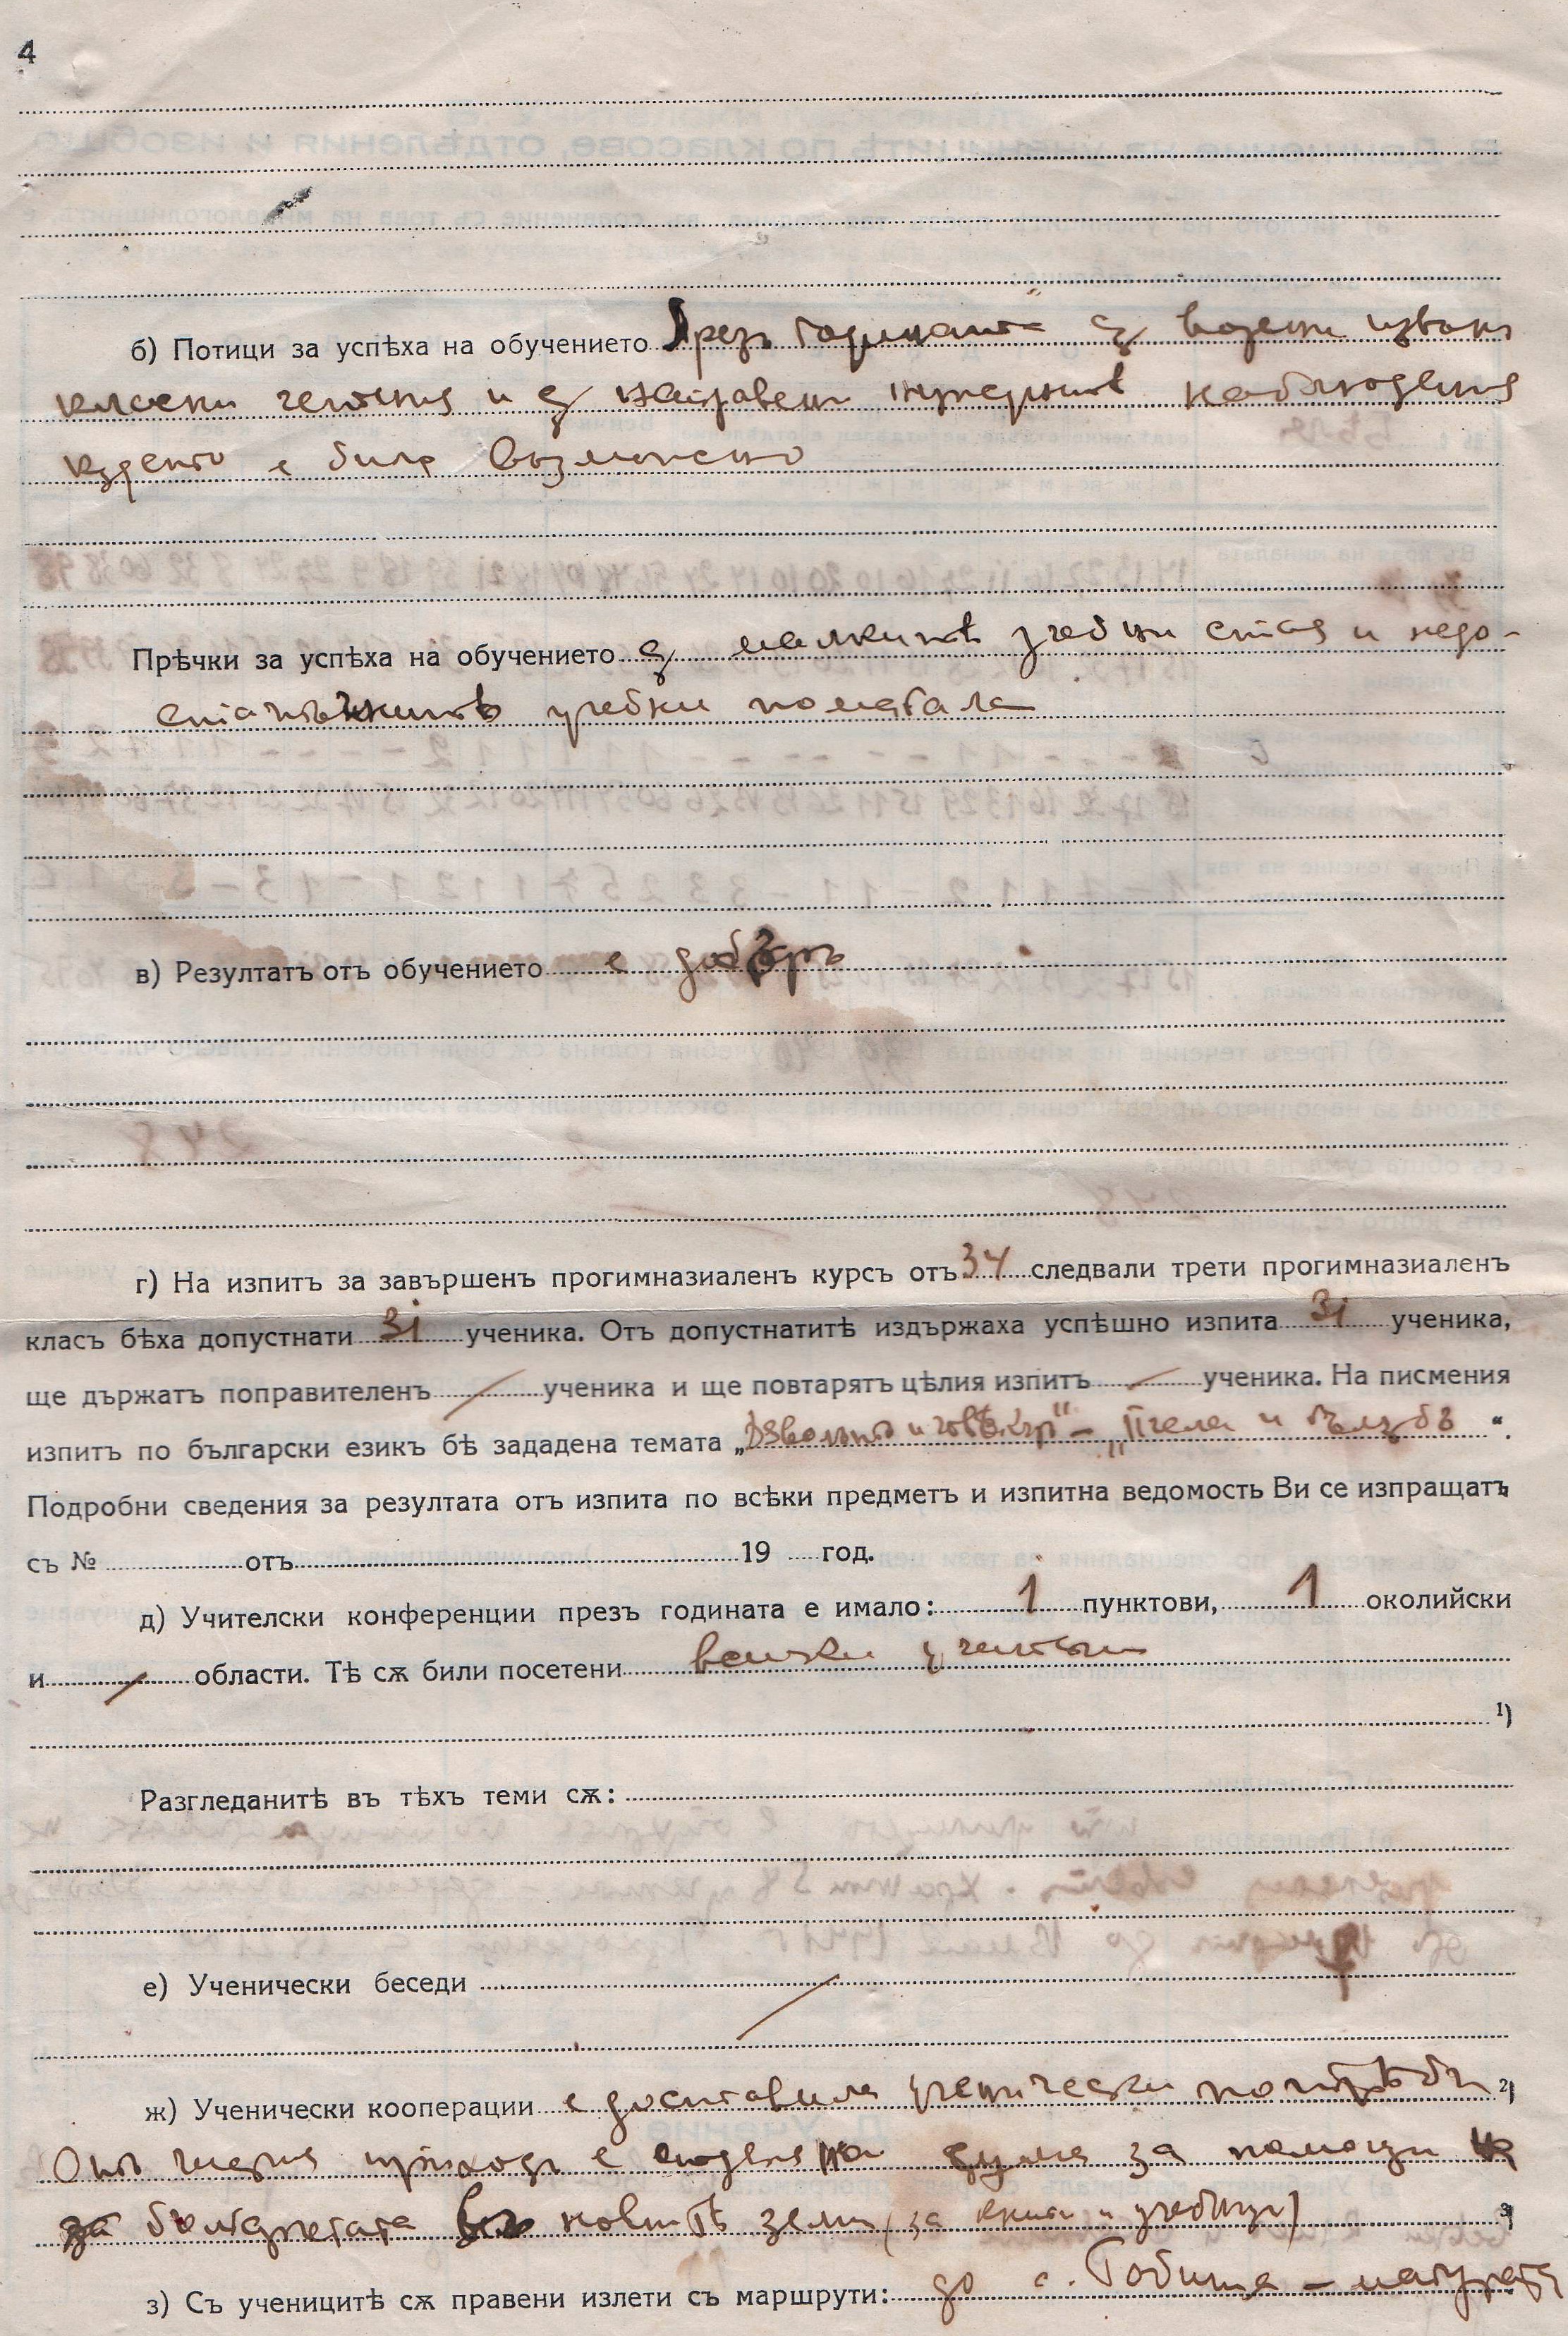 4
б) Потици за успѣха на обучението Презъ годината сѫ водени извън
класни четения и сѫ направени нуждните наблюдения
кѫдето е било възможно
Прѣчки за успѣха на обучението сѫ малкитѣ учебни стаи и недо-
статъчнитѣ учебни помагала
в) Резултатъ отъ обучението е добъръ
г) На изпитъ за завършенъ прогимназиаленъ курсъ отъ 34 следвали трети прогимназиаленъ
класъ бѣха допустнати 31 ученика. Отъ допустнатитѣ издържаха успѣшно изпита 31 ученика,
ще държатъ поправителенъ / ученика и ще повтарятъ цѣлия изпитъ / ученика. На писмения
изпитъ по български езикъ бѣ зададена темата „Дяволътъ и " – „Пчела и гълѫбъ “.
Подробни сведения за резултата отъ изпита по всѣки предметъ и изпитна ведомость Ви се изпращатъ
съ № отъ 19 год.
д) Учителски конференции презъ годината е имало: 1 пунктови, 1 околийски
и / области. Тѣ сѫ били посетени всички учители
1)
Разгледанитѣ въ тѣхъ теми сѫ:
е) Ученически беседи /
ж) Ученически кооперации е доставила ученически потрѣби 2)
Отъ чистия приходъ е сума за помощи на
българчетата въ новитѣ земи (за книги и учебници) 3)
з) Съ ученицитѣ сѫ правени излети съ маршрути: до с.